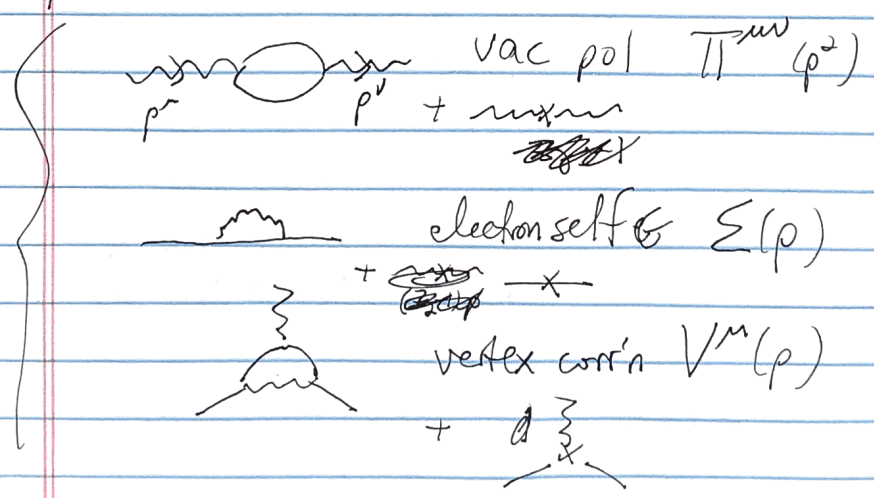 vac pol Π^{μν}(p²)
p^μ p^ν +
electron self E Σ(p)
+
vertex corr'n V^μ(p)
+